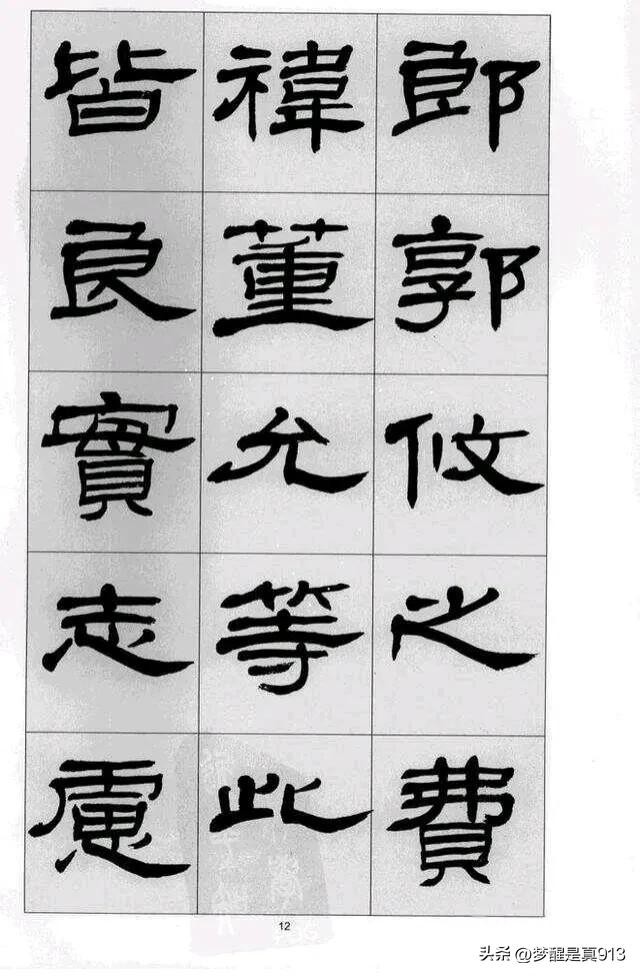 郎郭攸之費
禕董允等此
皆良實志慮
12
头条 @梦醒是真913